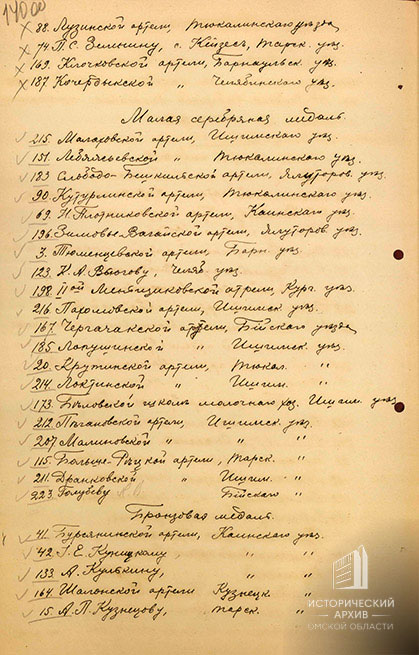 14000
88. Лузинской артели, Тюкалинскаго уѣзда
74 П. С. Зенкину, с. Кейзес, Тарск. уѣз.
169. Клочковской артели, Барнаульск. уѣз.
187 Кочердыкской " Челябинскаго уѣз.
Малая серебряная медаль.
215. Малаховской артели, Ишимскаго уѣз.
151. Лебяжьевской " Тюкалинскаго уѣз.
183 Слободо-Бешкильской артели, Ялуторов. уѣз.
90. Кутурлинской артели, Тюкалинскаго уѣз.
69. Н. Плотниковской артели, Каинскаго уѣз.
196. Зимовье-Вагайской артели, Ялуторов уѣз.
3. Тюменцевской артели, Барн. уѣз.
123. К. А. Вьюгову, Челяб. уѣз.
198. IIой Менящиковской артели, Кург. уѣз.
216. артели, Ишимск. уѣз.
167. Чергачакской артели, Бійскаго уѣзда
185. Лапушинской " Ишимск. уѣз.
20. Крутинской артели, Тюкал. "
214. Локтинской " Ишим. "
173. Бѣловской школѣ молочнаго хоз. Ишим. уѣз.
212. Пѣгановской артели, Ишимск уѣз.
207 Малиновской " " "
115. Больше-Рѣцкой артели, Тарск. "
211. Дранковской " Ишим. "
223. Голубеву Бійскаго "
Бронзовая медаль.
41. артели, Каинскаго уѣз.
42. Г. Е. " "
133. А. Кулькину, " "
164. Шалонской артели Кузнецк. "
15. А. П. Кузнецову, Тарск. "
ИСТОРИЧЕСКИЙ
АРХИВ
ОМСКОЙ ОБЛАСТИ